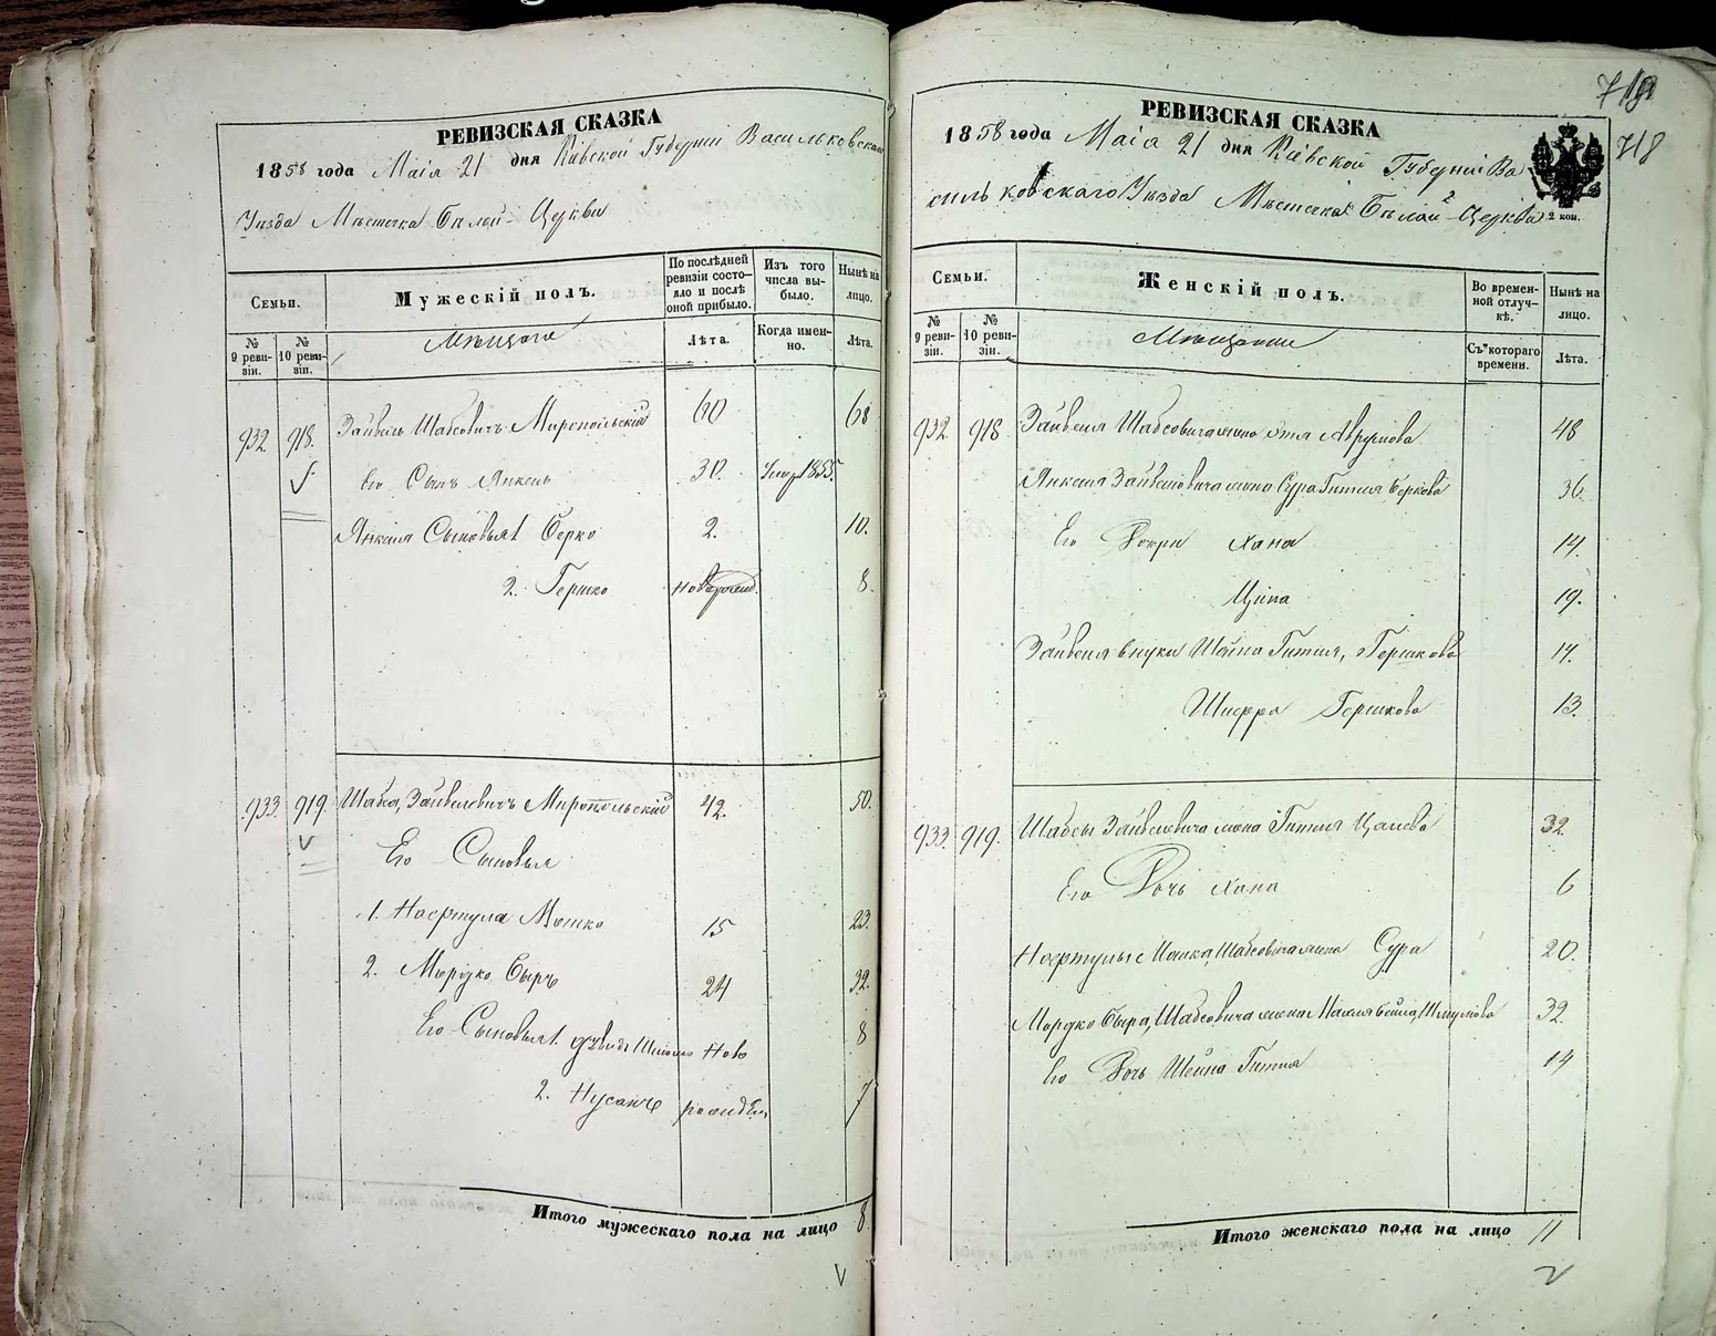 РЕВИЗСКАЯ СКАЗКА
1858 года Маія 21 дня Кіевской Губерніи Васильковскаго
Уѣзда Мѣстечка Бѣлой-Церкви
Семьи.
Мужескій полъ.
По послѣдней ревизіи состояло и послѣ оной прибыло.
Изъ того числа выбыло.
Нынѣ на лицо.
№ 9 ревизіи.
№ 10 ревизіи.
Мѣщане
Лѣта.
Когда именно.
Лѣта.
932. 918. Зайвель Шабсовичъ Миропольскій 60 68
Его Сынъ Янкель 30. Умер 1855.
Янкеля Сыновья 1 Берко 2. 10.
2. Гершко новорожд. 8.
933. 919. Шабса Зайвелевичъ Миропольскій 42. 50.
Его Сыновья
1. Нафтула Мошко 15 23.
2. Мордко Сыръ 24 32.
Его Сыновья 1. Ново 8
2. Нусанъ рожден 7
Итого мужескаго пола на лицо 8
V
718
718
РЕВИЗСКАЯ СКАЗКА
1858 года Маія 21 дня Кіевской Губерніи Ва
сильковскаго Уѣзда Мѣстечка Бѣлой-Церкви
2 коп.
Семьи.
Женскій полъ.
Во временной отлучкѣ.
Нынѣ на лицо.
№ 9 ревизіи.
№ 10 ревизіи.
Мѣщанки
Съ котораго времени.
Лѣта.
932. 918. Зайвеля Шабсовича жена Этя Аврумова 48
Янкеля Зайвеловича жена Сура Гитля Беркова 36.
Его Дочри Хана 14.
Ципа 19.
Зайвеля внуки Шейна Гитля, Гершкова 14.
Шифра Гершкова 13.
933. 919. Шабсы Зайвелевича жена Гитля 32.
Его Дочь Хана 6
Нафтулы Мошка Шабсовича жена Сура 20.
Мордко Сыра, Шабсовича жена Шмулова 32.
Его Дочь Шейна Гитля 14
Итого женскаго пола на лицо 11